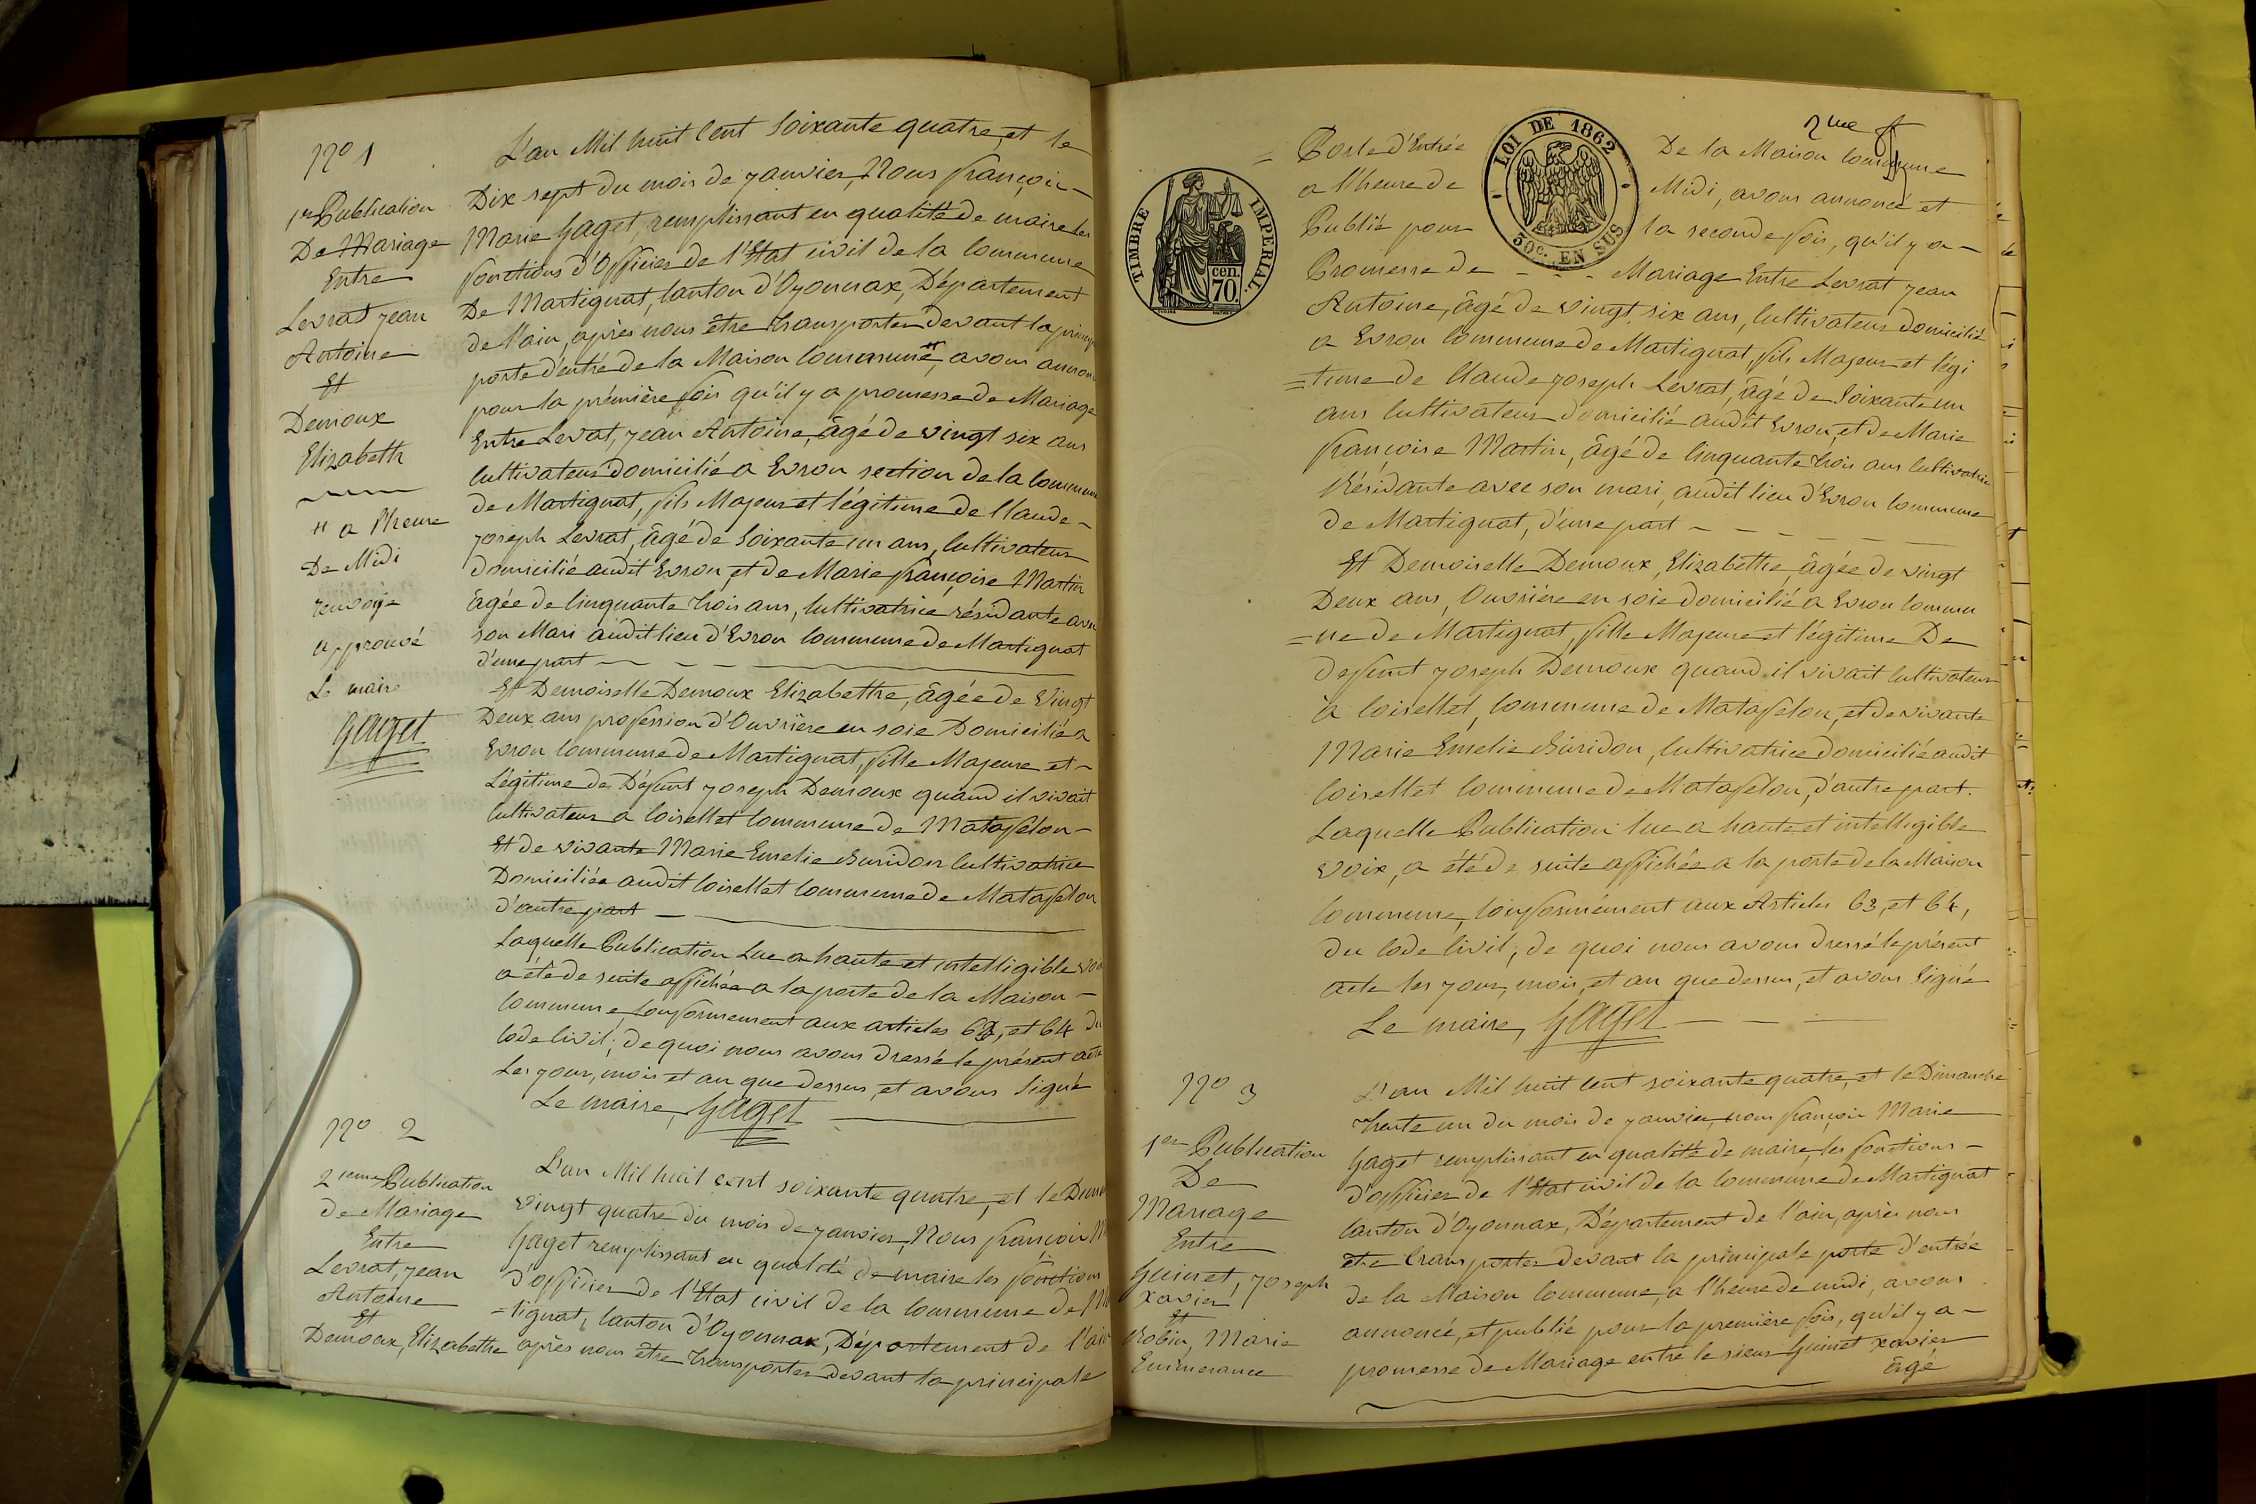 Nº 1
1re Publication
De Mariage
Entre
Levrat Jean
Antoine
Et
Demoux
Elizabeth
" a l'heure
De Midi
renvoie
approuvé
Le maire
Gaget
L'an Mil huit Cent Soixante quatre, et le
Dix sept du mois de Janvier, Nous françois-
Marie Gaget, remplissant en qualité de maire les
fonctions d'Officier de l'Etat civil de la Commune
De Martignat, Canton d'Oyonnax, Département
de l'ain, après nous être transporter devant la princip
porte d'entré de la Maison Commune", avons annon
pour la prémière fois qu'il y a promesse de Mariage
Entre Levrat, Jean Antoine, âgé de vingt six ans
Cultivateur domicilié a Evron section de la Commune
de Martignat, fils Majeur et légitime de Claude-
Joseph Levrat, âgé de Soixante un ans, Cultivateur
domicilié audit Evron, et de Marie françoise Martin
âgée de Cinquante trois ans, Cultivatrice résidante avec
son Mari audit lieu d'Evron Commune de Martignat
d'une part
Et Demoiselle Demoux Elizabethe, âgée de Vingt
Deux ans profession d'Ouvrière en soie Domicilié a
Evron Commune de Martignat, fille Majeure et-
Légitime de Défunt Joseph Demoux quand il vivait
Cultivateur a Coisellet Commune de Matafelon-
Et de vivante Marie Emelie Buridon Cultivatrice
Domiciliée audit Coisellet Commune de Matafelon
d'autre part
Laquelle Publication Lue a haute et intelligible voix
a été de suite affichée a la porte de la Maison-
Commune, Conformement aux articles 63, et 64 du
Code Civil; de quoi nous avons dressé le présent acte
Les jour, mois et an que dessus, et avons Signé
Le maire, Gaget
Nº 2
2ieme Publication
de Mariage
Entre
Levrat, Jean
Antoine
Et
Demoux, Elizabethe
L'an Mil huit cent soixante quatre, et le Diman
vingt quatre du mois de Janvier, Nous françois M
Gaget remplissant en qualité de maire les fonctions
d'officier de l'Etat civil de la Commune de Mar
=tignat, Canton d'Oyonnax, Département de l'ain
après nous être transporter devant la principale
2me f
TIMBRE IMPERIAL
cen.
70.
LOI DE 1862
50c. EN SUS
= Porte d'Entrée De la Maison Commune
a l'heure de Midi, avons annoncé et
Publié pour la seconde fois, qu'il y a-
Promesse de - - - Mariage Entre Levrat Jean
Antoine, âgé de vingt six ans, Cultivateur domicilié
a Evron Commune de Martignat, fils Majeur et légi
=time de Claude Joseph Levrat, âgé de Soixante un
ans Cultivateur domicilié audit Evron, et de Marie
françoise Martin, âgé de Cinquante trois ans Cultivatrice
Résidante avec son mari, audit lieu d'Evron Commune
de Martignat, d'une part - - - - -
Et Demoiselle Demoux, Elizabethe, âgée de vingt
Deux ans, Ouvrière en soie domicilié a Evron Commu
=ne de Martignat, fille Majeure et légitime De
défunt Joseph Demoux quand il vivait Cultivateur
à Coisellet, Commune de Matafelon, et de vivante
Marie Emelie Buridon, Cultivatrice domicilié audit
Coisellet Commune de Matafelon, d'autre part.
Laquelle Publication lue a haute et intelligible
voix, a été de suite affichée a la porte de la Maison
Commune, Conformément aux Articles 63, et 64,
du Code Civil; de quoi nous avons dressé le présent
acte les jour, mois, et an que dessus, et avons Signé
Le maire, Gaget
Nº 3
1ere Publication
De
Mariage
Entre
Guinet, Joseph
Xavier
Et
Robin, Marie
L'an Mil huit cent soixante quatre, et le Dimanche
trente un du mois de Janvier, nous françois Marie
Gaget remplissant en qualité de maire, les fonctions-
d'officier de l'Etat civil de la Commune de Martignat
Canton d'Oyonnax, Département de l'ain, après nous
être transporter devant la principale porte d'entrée
de la Maison Commune, a l'heure de midi, avons
annoncé, et publié pour la première fois, qu'il y a-
promesse de Mariage entre le sieur Guinet Xavier
âgé